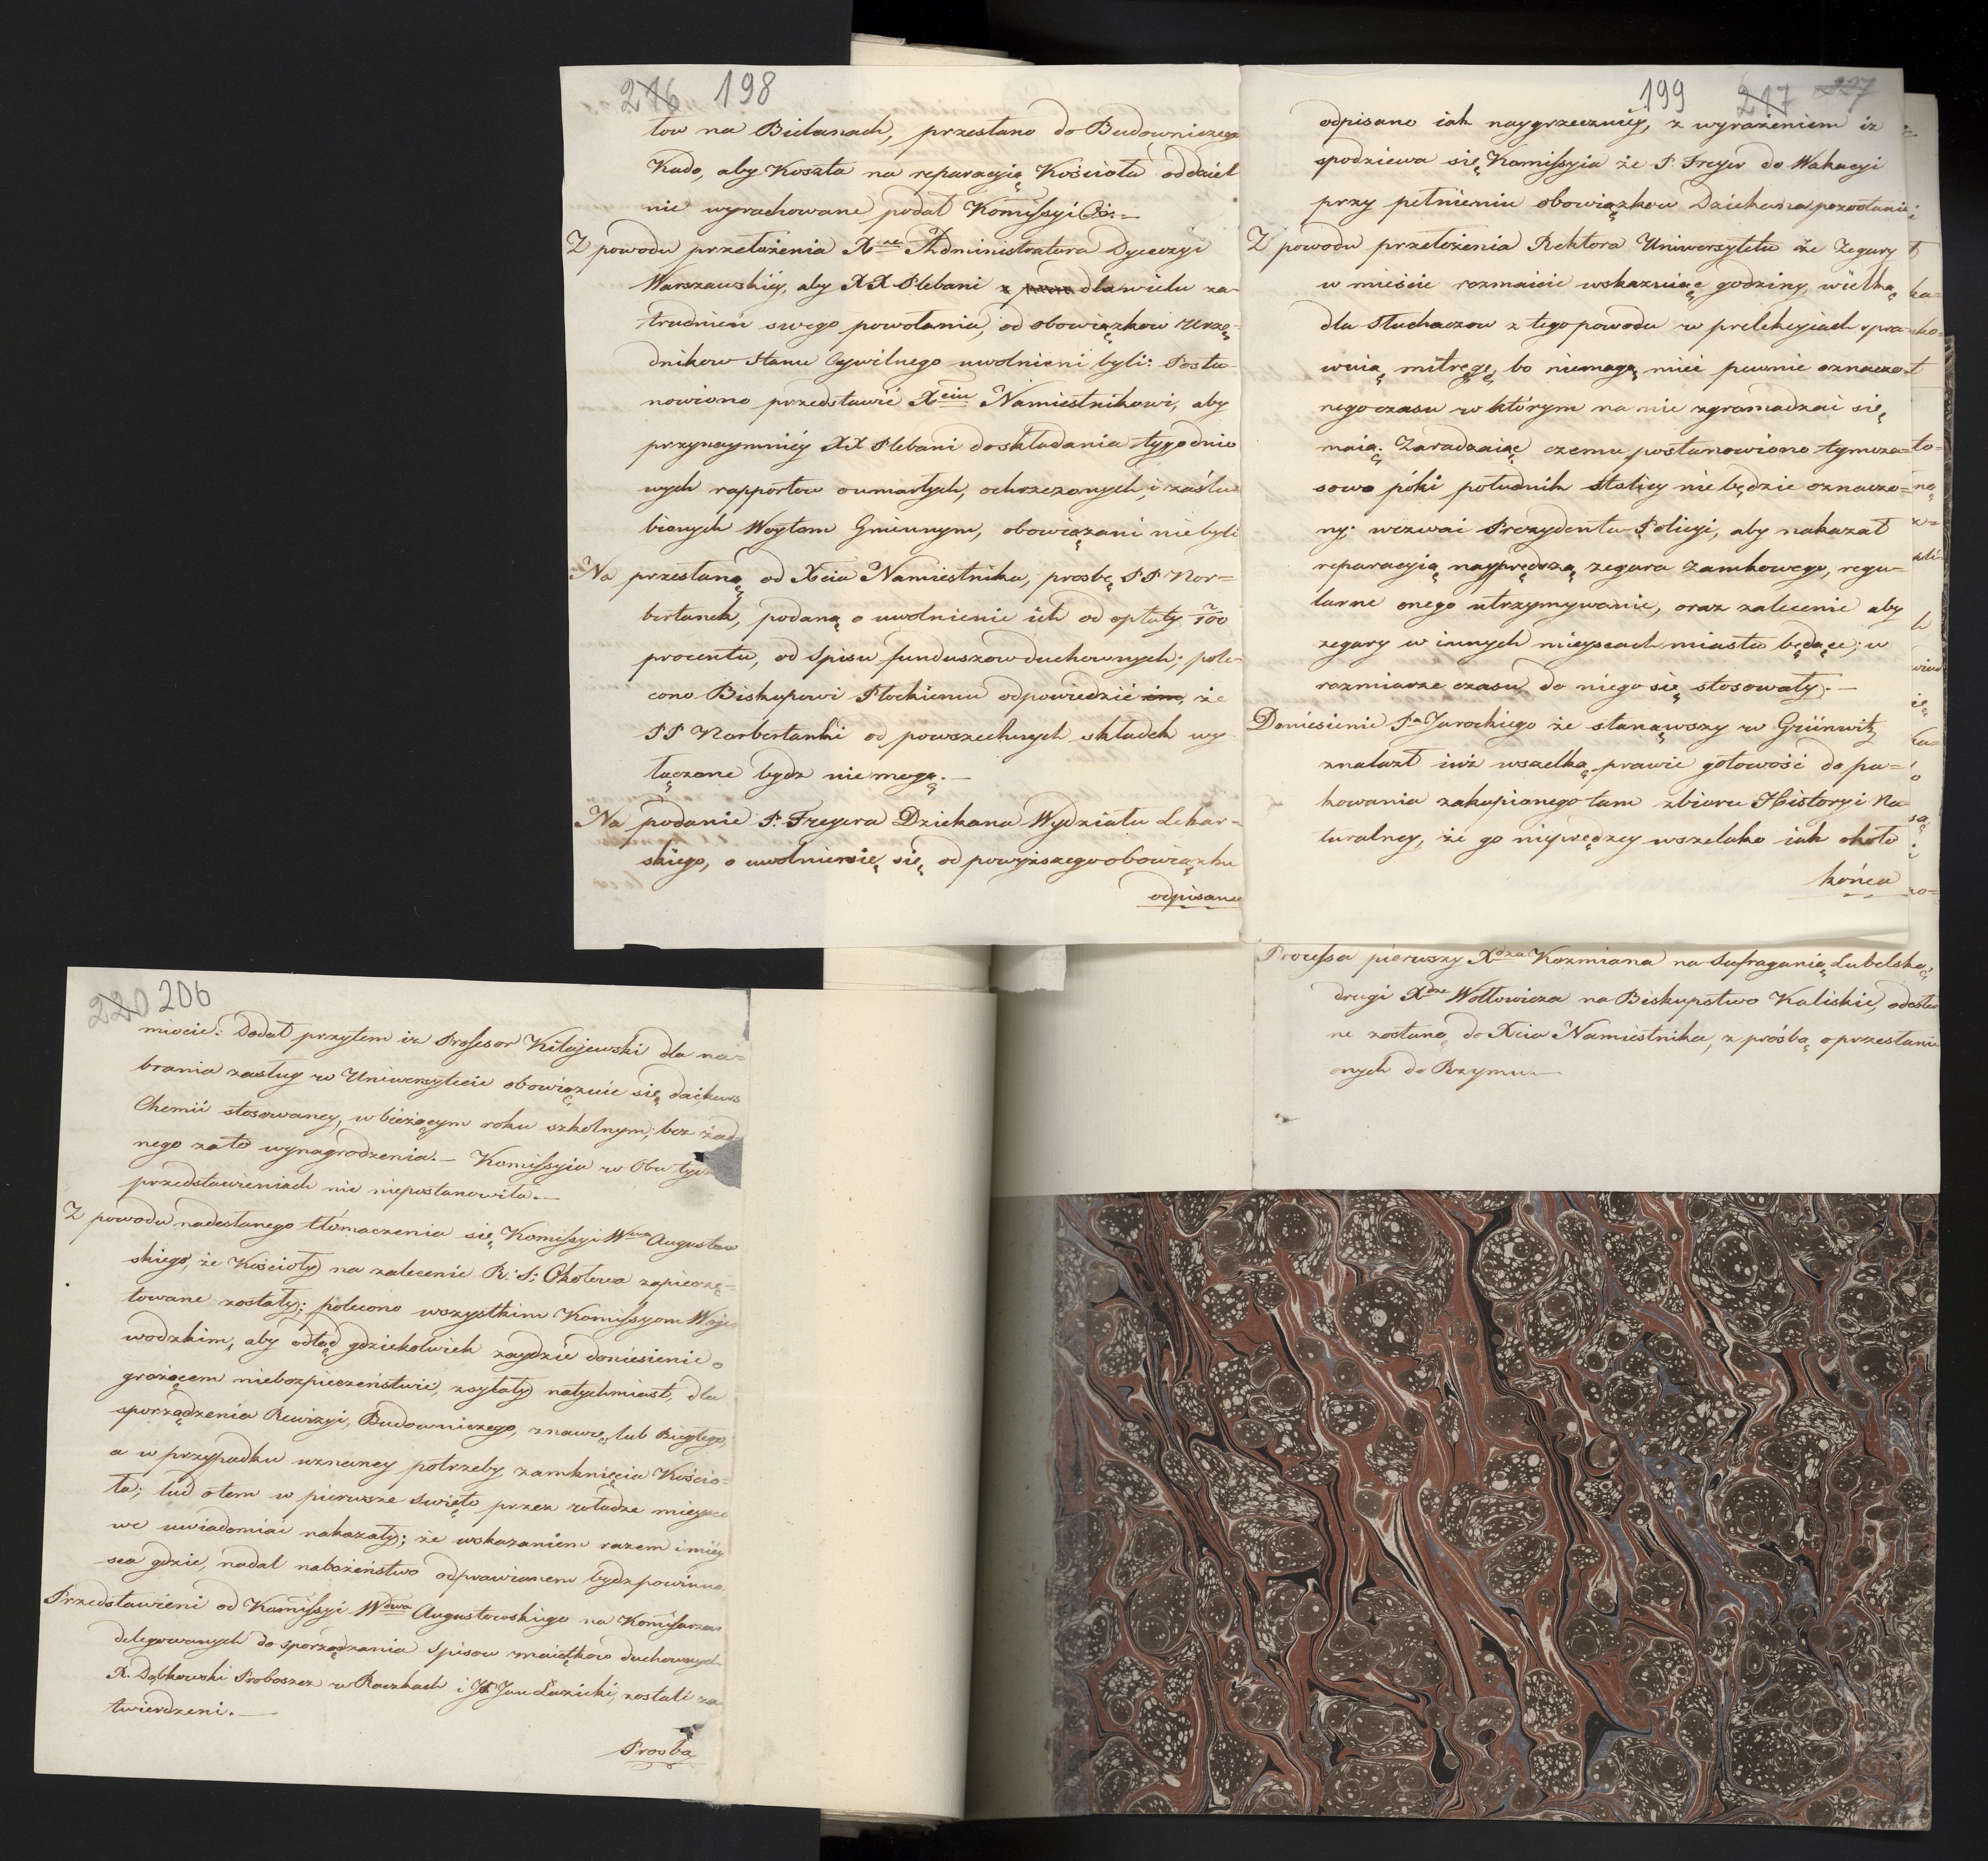 216 198
tow na Bielanach, przesłano do Budowniczego
Kado, aby Koszta na reparacyią Kościoła oddziel
nie wyrachowane podał Komissyi
Z powodu przełożenia Xa Administratora Dyecezyi
Warszawskiéy, aby XX Plebani dla wielu za-
trudnień swego powołania, od obowiązkow Urzę-
dnikow Stanu Cywilnego uwolnieni byli: Posta-
nowiono przedstawić Xciu Namiestnikowi, aby
przynaymniéy XX Plebani do składania tygodnio
wych rapportow o umarłych, ochrzczonych, i zaślu
bionych Woytom Gminnym, obowiązani nie byli
Na przesłaną od Xcia Namiestnika, prosbę PP Nor=
bertanek, podaną o uwolnienie ich od opłaty 2/100
procentu, od Spisu funduszow duchownych; pole-
cono Biskupowi Płockiemu odpowiedzieć im, że
PP Norbertanki od powszechnych składek wy-
łączone bydz nie mogą.—
Na podanie P. Freyera Dziekana Wydziału Lekar-
skiego, o uwolnienie się od powyższego obowiązku
odpisano
199 217 227
odpisano iak naygrzeczniéy, z wyrażeniem iż
spodziewa się Komissyia że P. Freyer do Wakacyi
przy pełnieniu obowiązkow Dziekana pozostanie
Z powodu przełożenia Rektora Uniwersytetu że Zegary
w mieście rozmaicie wskazuiąc godziny, wielką
dla Słuchaczow z tego powodu w prelekcyiach spra-
wuią mitręgę, bo niemogą mieć pewnie oznaczo
nego czasu w którym na nie zgromadzać się
maią. Zaradzaiąc czemu postanowiono tymcza-
sowo póki południk stolicy nie będzie oznaczo=
ny; wezwać Prezydenta Policyi, aby nakazał
reparacyią nayprędszą zegara Zamkowego, regu-
larne onego utrzymywanie, oraz zalecenie aby
zegary w innych mieyscach miasta będące; w
rozmiarze czasu do niego się stosowały.—
Doniesienie Pa Jarockiego że stanąwszy w Grünwitz
znalazł iuż wszelką prawie gotowość do pa-
kowania zakupionego tam zbioru Historyi Na
turalney, że go nieprędzey wszelako iak około
końca
Processa pierwszy Xdza Kozmiana na Sufraganią Lubelską,
drugi Xdza Wołłowicza na Biskupstwo Kaliskie, odesła
ne zostaną do Xcia Namiestnika, z prośbą o przesłanie
onych do Rzymu.—
220 206
miocie: Dodał przytem iż Professor Kitajewski dla na=
brania zasług w Uniwersytecie obowiązuie się dać kurs
Chemii stosowaney, w bieżącym roku szkolnym; bez żad
nego za to wynagrodzenia.— Komissyia w Obu tych
przedstawieniach nic niepostanowiła.—
Z powodu nadesłanego tłómaczenia się Komissyi Wdwa Augustow
skiego, że Kościoły na zalecenie R: S: Cholewa zapieczę-
towane zostały; polecono wszystkim Komissyom Woje
wodzkim, aby odtąd gdziekolwiek zaydzie doniesienie o
grożącem niebezpieczeństwie, zsyłały natychmiast, dla
sporządzenia Rewizyi, Budowniczego, znawcę, lub Biegłego;
a w przypadku uznaney potrzeby zamknięcia Kościo-
ła; lud o tem w pierwsze święto przez władze mieysco
we uwiadomiać nakazały; ze wskazaniem razem i miéy
sca gdzie, nadal nabożeństwo odprawianem bydz powinno.
Przedstawieni od Komissyi Wdwa Augustowskiego na Komissarzow
delegowanych do sporządzania Spisow maiątkow duchownych
X. Dąbkowski Proboszcz w Raczkach i Jan Łazicki, zostali za
twierdzeni.—
Prosba